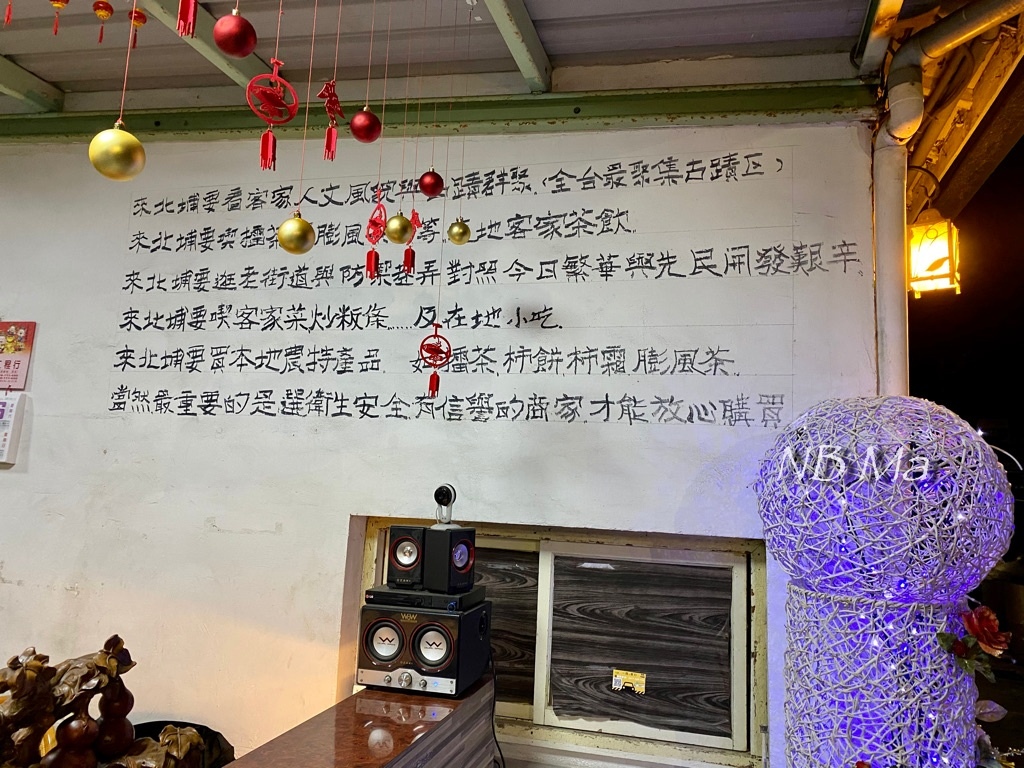 來北埔要看客家人文風貌與古蹟群聚(全台最聚集古蹟區)
來北埔要喫擂茶 膨風 等 地客家茶飲.
來北埔要逛老街道與防禦巷弄對照今日繁華與先民開發艱辛.
來北埔要喫客家菜炒粄條......及在地小吃.
來北埔要買本地農特產品. 如擂茶.柿餅.柿霜.膨風茶.
當然最重要的是選衛生安全有信譽的商家.才能放心購買
NB.Ma
W&W